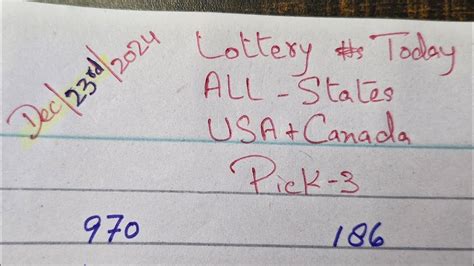 Dec/23rd/2024
Lottery #s Today
ALL - States
USA + Canada
Pick-3
970 186